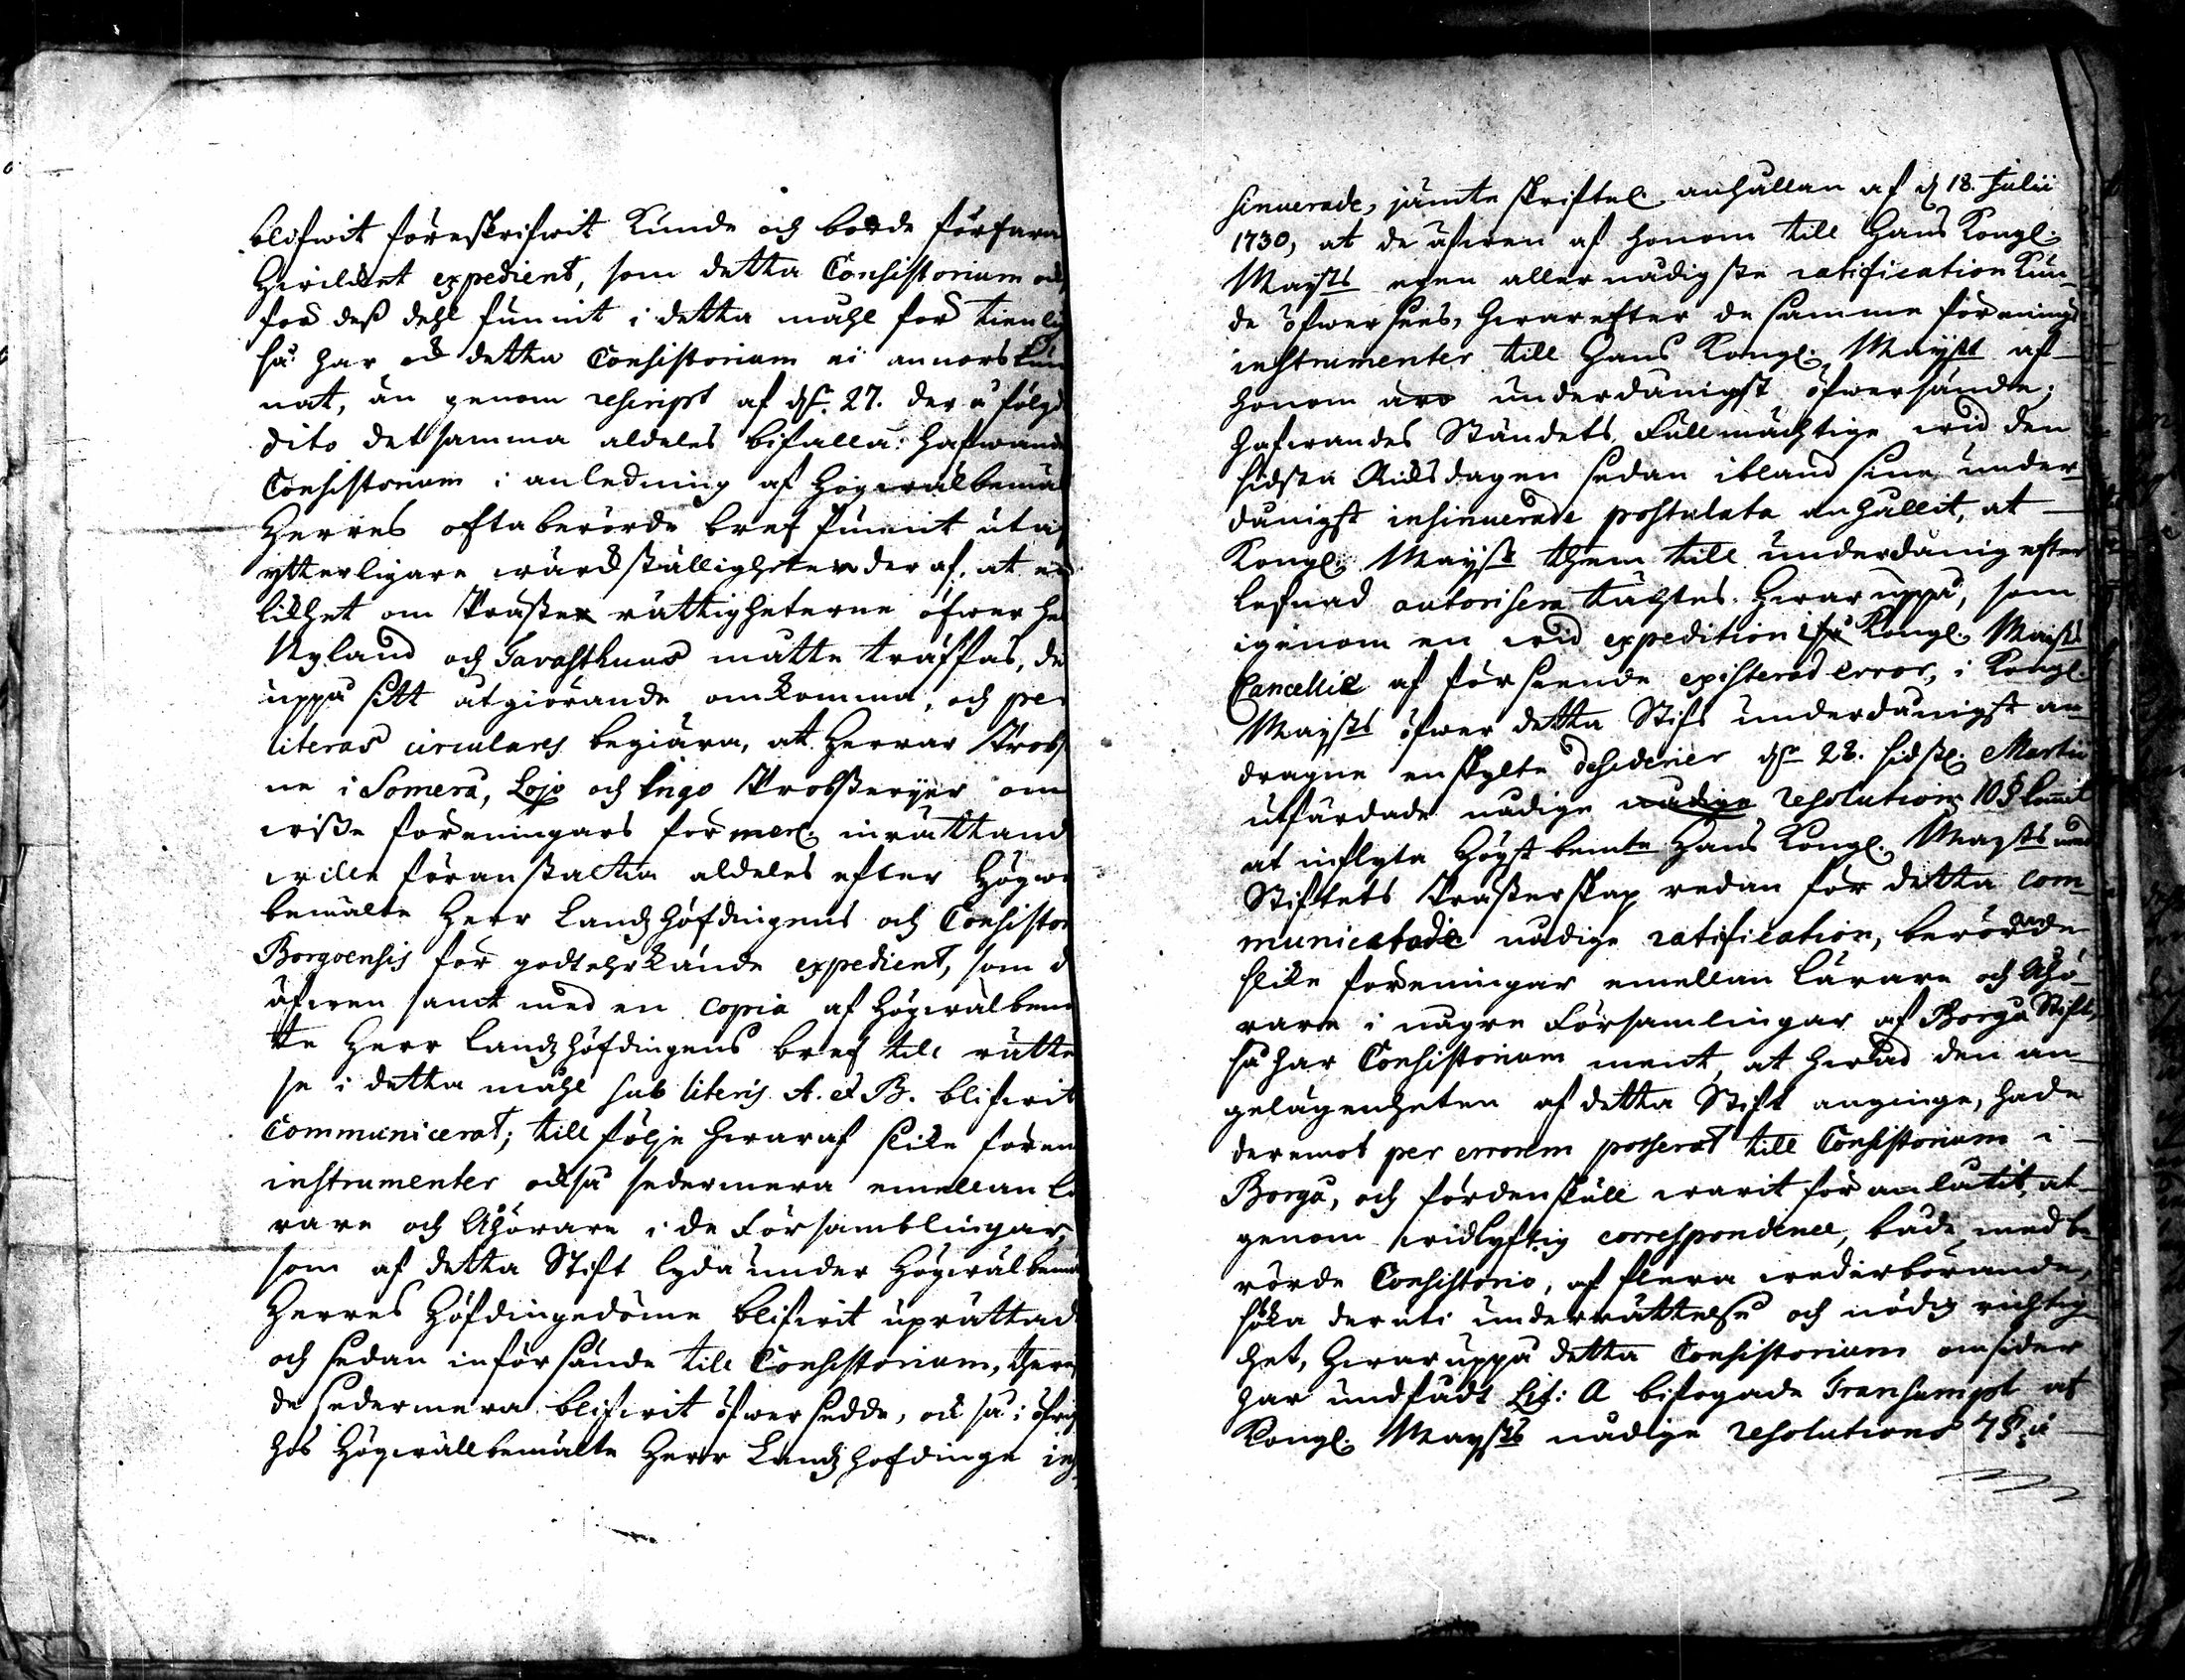 blifwit föreskrifwit kunde och borde förfara
hwilket expedient, som detta Consistorium och
för dess dehl funnit i detta måhl för tienlig
så har och detta Consistorium ei annors kun
nat, än genom rescript af d. 27. der å följd
dito det samma aldeles bifalla: Hafwande
Consistorium i anledning af Högwälbemäl
Herres oftaberörde bref funnit uta
ytterligare wärdställigheten der af, at en
likhet om Präste rättigheterne öfwer he
Nyland och Tavasthuus måtte träffas, de
uppå sitt åtgiörande omkomma, och per
literas circulares begiära, at Herrar Prob
ne i Somero, Lojo och Ingo Prosterijer om
wisse föreningars formerl. inrättand
wille föranstalta aldeles efter Högwä
bemälte Herr Landzhöfdingens och Consistor
Borgoensis för godt ehrkände expedient, som d
äfwen samt med en copia af Högwälbem
te Herr Landzhöfdingens bref till rätte
se i detta måhl sub literis A. et B. blifwit
Communicerat; till följe hwaraf slike fören
instrumenter också sedermera emellan Lä
rare och Åhörare i de Församblingar,
som af detta Stift lyda under Högwälbemä
Herres Höfdingedöme blifwit uprättad
och sedan införsände till Consistorium, ther
de sedermera blifwit öfwersedde, och så i öfrig
hos Högwällbemälte Herr Landzhöfdinge in
sinuerade, jämte skriftel. anhållan af d 18. Julii
1730, at de äfwen af honom till Hans Kongl.
Mayts egen allernådigste ratification kun-
de öfwersees, hwarefter de samme förenings
instrumenter till Hans Kongl. Mayst af
honom äro underdånigst öfwersände;
Hafwandes Ståndets Fullmächtige wid den
sidsta Riksdagen sedan ibland sine under-
dånigst insinuerade postulata anhållit, at
Kongl. Mayst them till underdånig efter
lefnad autorisera täcktes. Hwaruppå, som
igenom en wid expedition i Kongl. Mayts
Cancellie af förseende existerad error, i Kongl.
Maysts öfwer detta Stift underdånigst an-
dragne enskylte desiderier d. 28. sidstl. Martii
utfärdade nådige resolutions 10 § kommit
at inflyta Högst bemte Hans Kongl. Maysts med
Stiftets Prästerskap redan för detta com-
municerade nådige ratification, berörde
slike föreningar emellan Lärare och Åhö-
rare i någre Församlingar af Borgå Stift,
så har Consistorium ment, at hwad den an-
gelägenheten af detta Stift anginge, hade
deremot per errorem passerat till Consistorium i
Borgå, och fördenskull warit föranlåtit, at
genom widlyftig correspondence, både med be
rörde Consistorio, af flera wederbörande,
söka deruti underrättelse och nödig richtig-
het, hwaruppå detta Consistorium omsider
har undfådt Lit: A bifogade Transumpt af
Kongl. Maysts nådige resolutions 7 § å